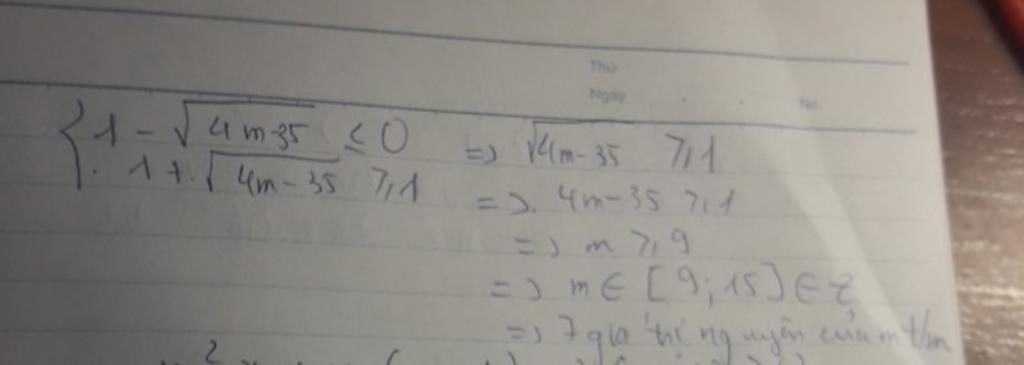 Thứ
Ngày No.
{ 1 - √(4m-35) ≤ 0 => √(4m-35) ≥ 1
1 + √(4m-35) ≥ 1 => 4m-35 ≥ 1
=> m ≥ 9
=> m ∈ [9; 15] ∈ Z
=> 7 giá trị nguyên của m t/m
2